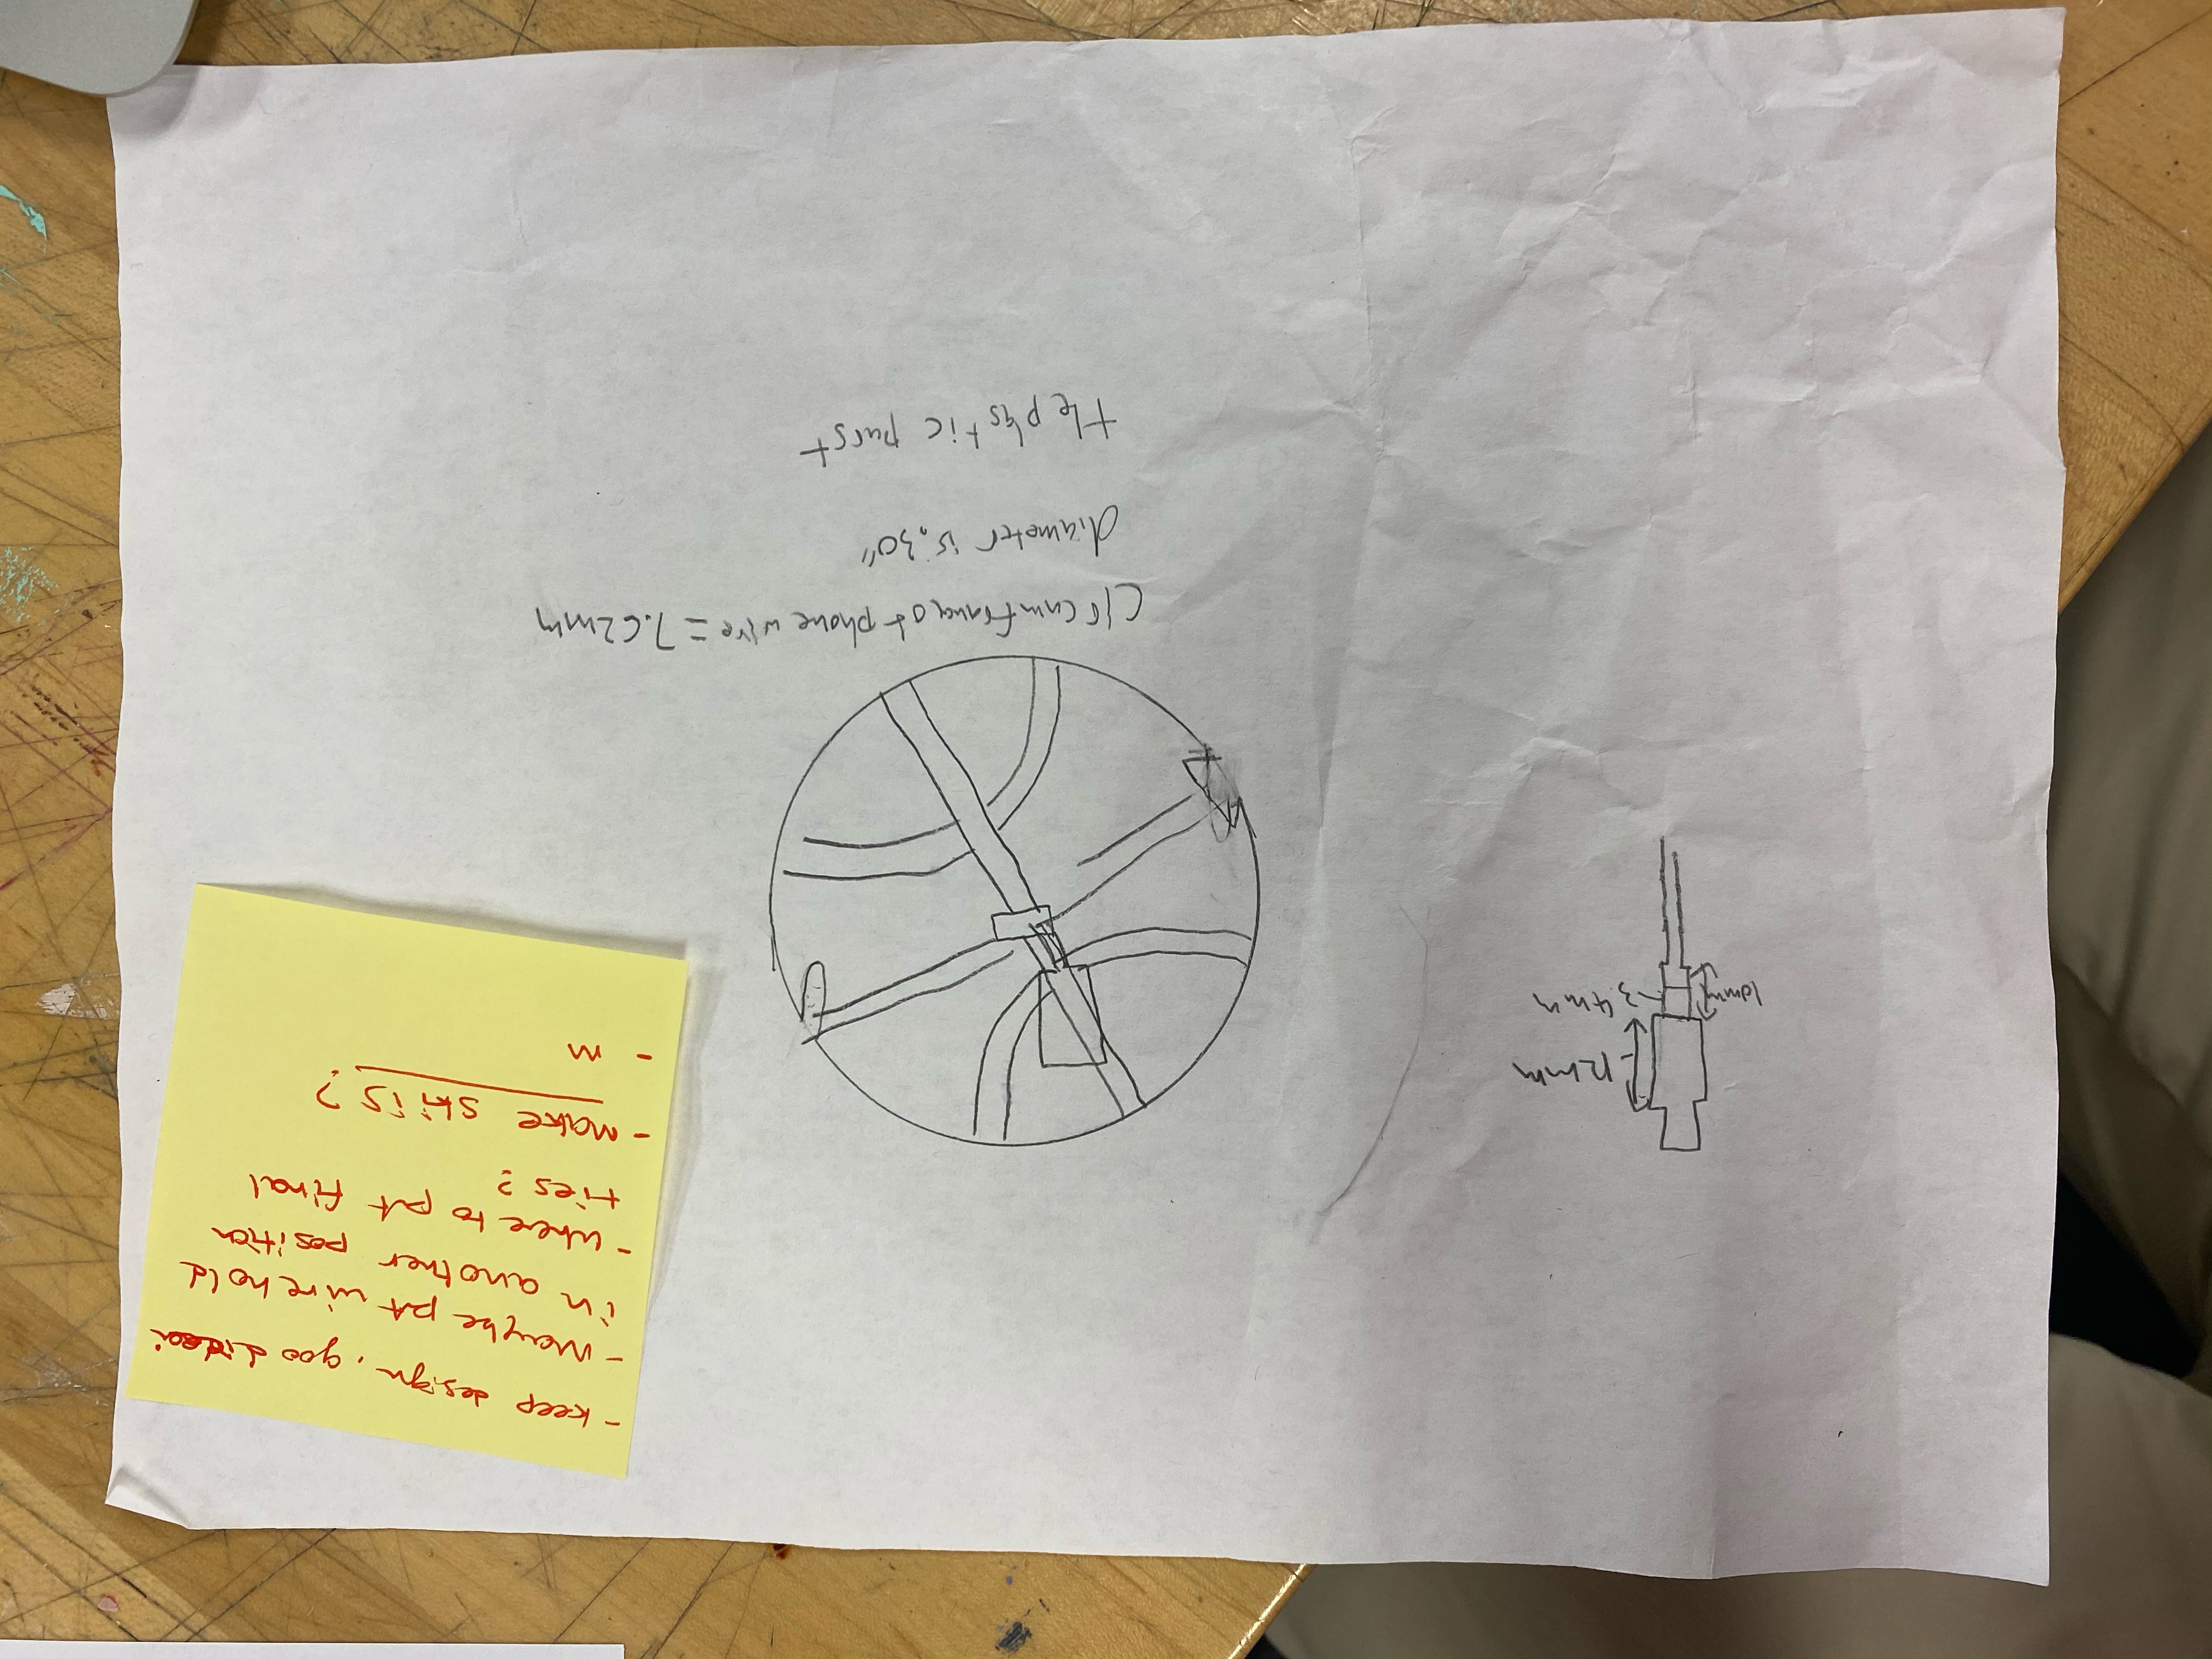 - keep design, good
- Maybe put wire hold
in another position
- where to put final
ties?
- make skiis?
- m
Circumfrance of phone wire = 7.62mm
diameter is .30"
the plastic purst
12mm
3.4mm
10mm